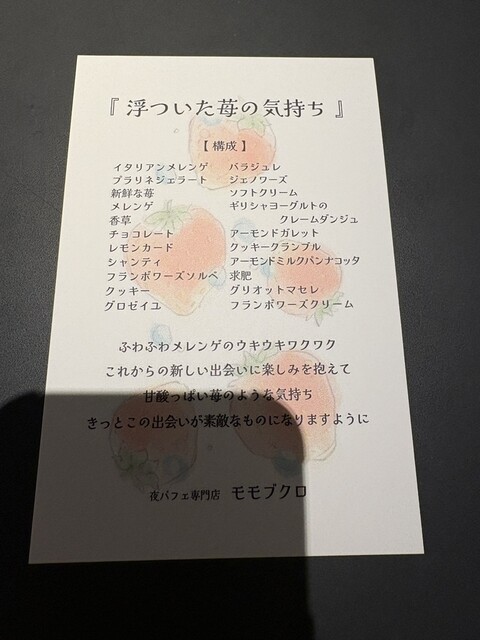 『 浮ついた苺の気持ち 』
【 構成 】
イタリアンメレンゲ バラジュレ
プラリネジェラート ジェノワーズ
新鮮な苺 ソフトクリーム
メレンゲ ギリシャヨーグルトの
香草 クレームダンジュ
チョコレート アーモンドガレット
レモンカード クッキークランブル
シャンティ アーモンドミルクパンナコッタ
フランボワーズソルベ 求肥
クッキー グリオットマセレ
グロゼイユ フランボワーズクリーム
ふわふわメレンゲのウキウキワクワク
これからの新しい出会いに楽しみを抱えて
甘酸っぱい苺のような気持ち
きっとこの出会いが素敵なものになりますように
夜パフェ専門店 モモブクロ